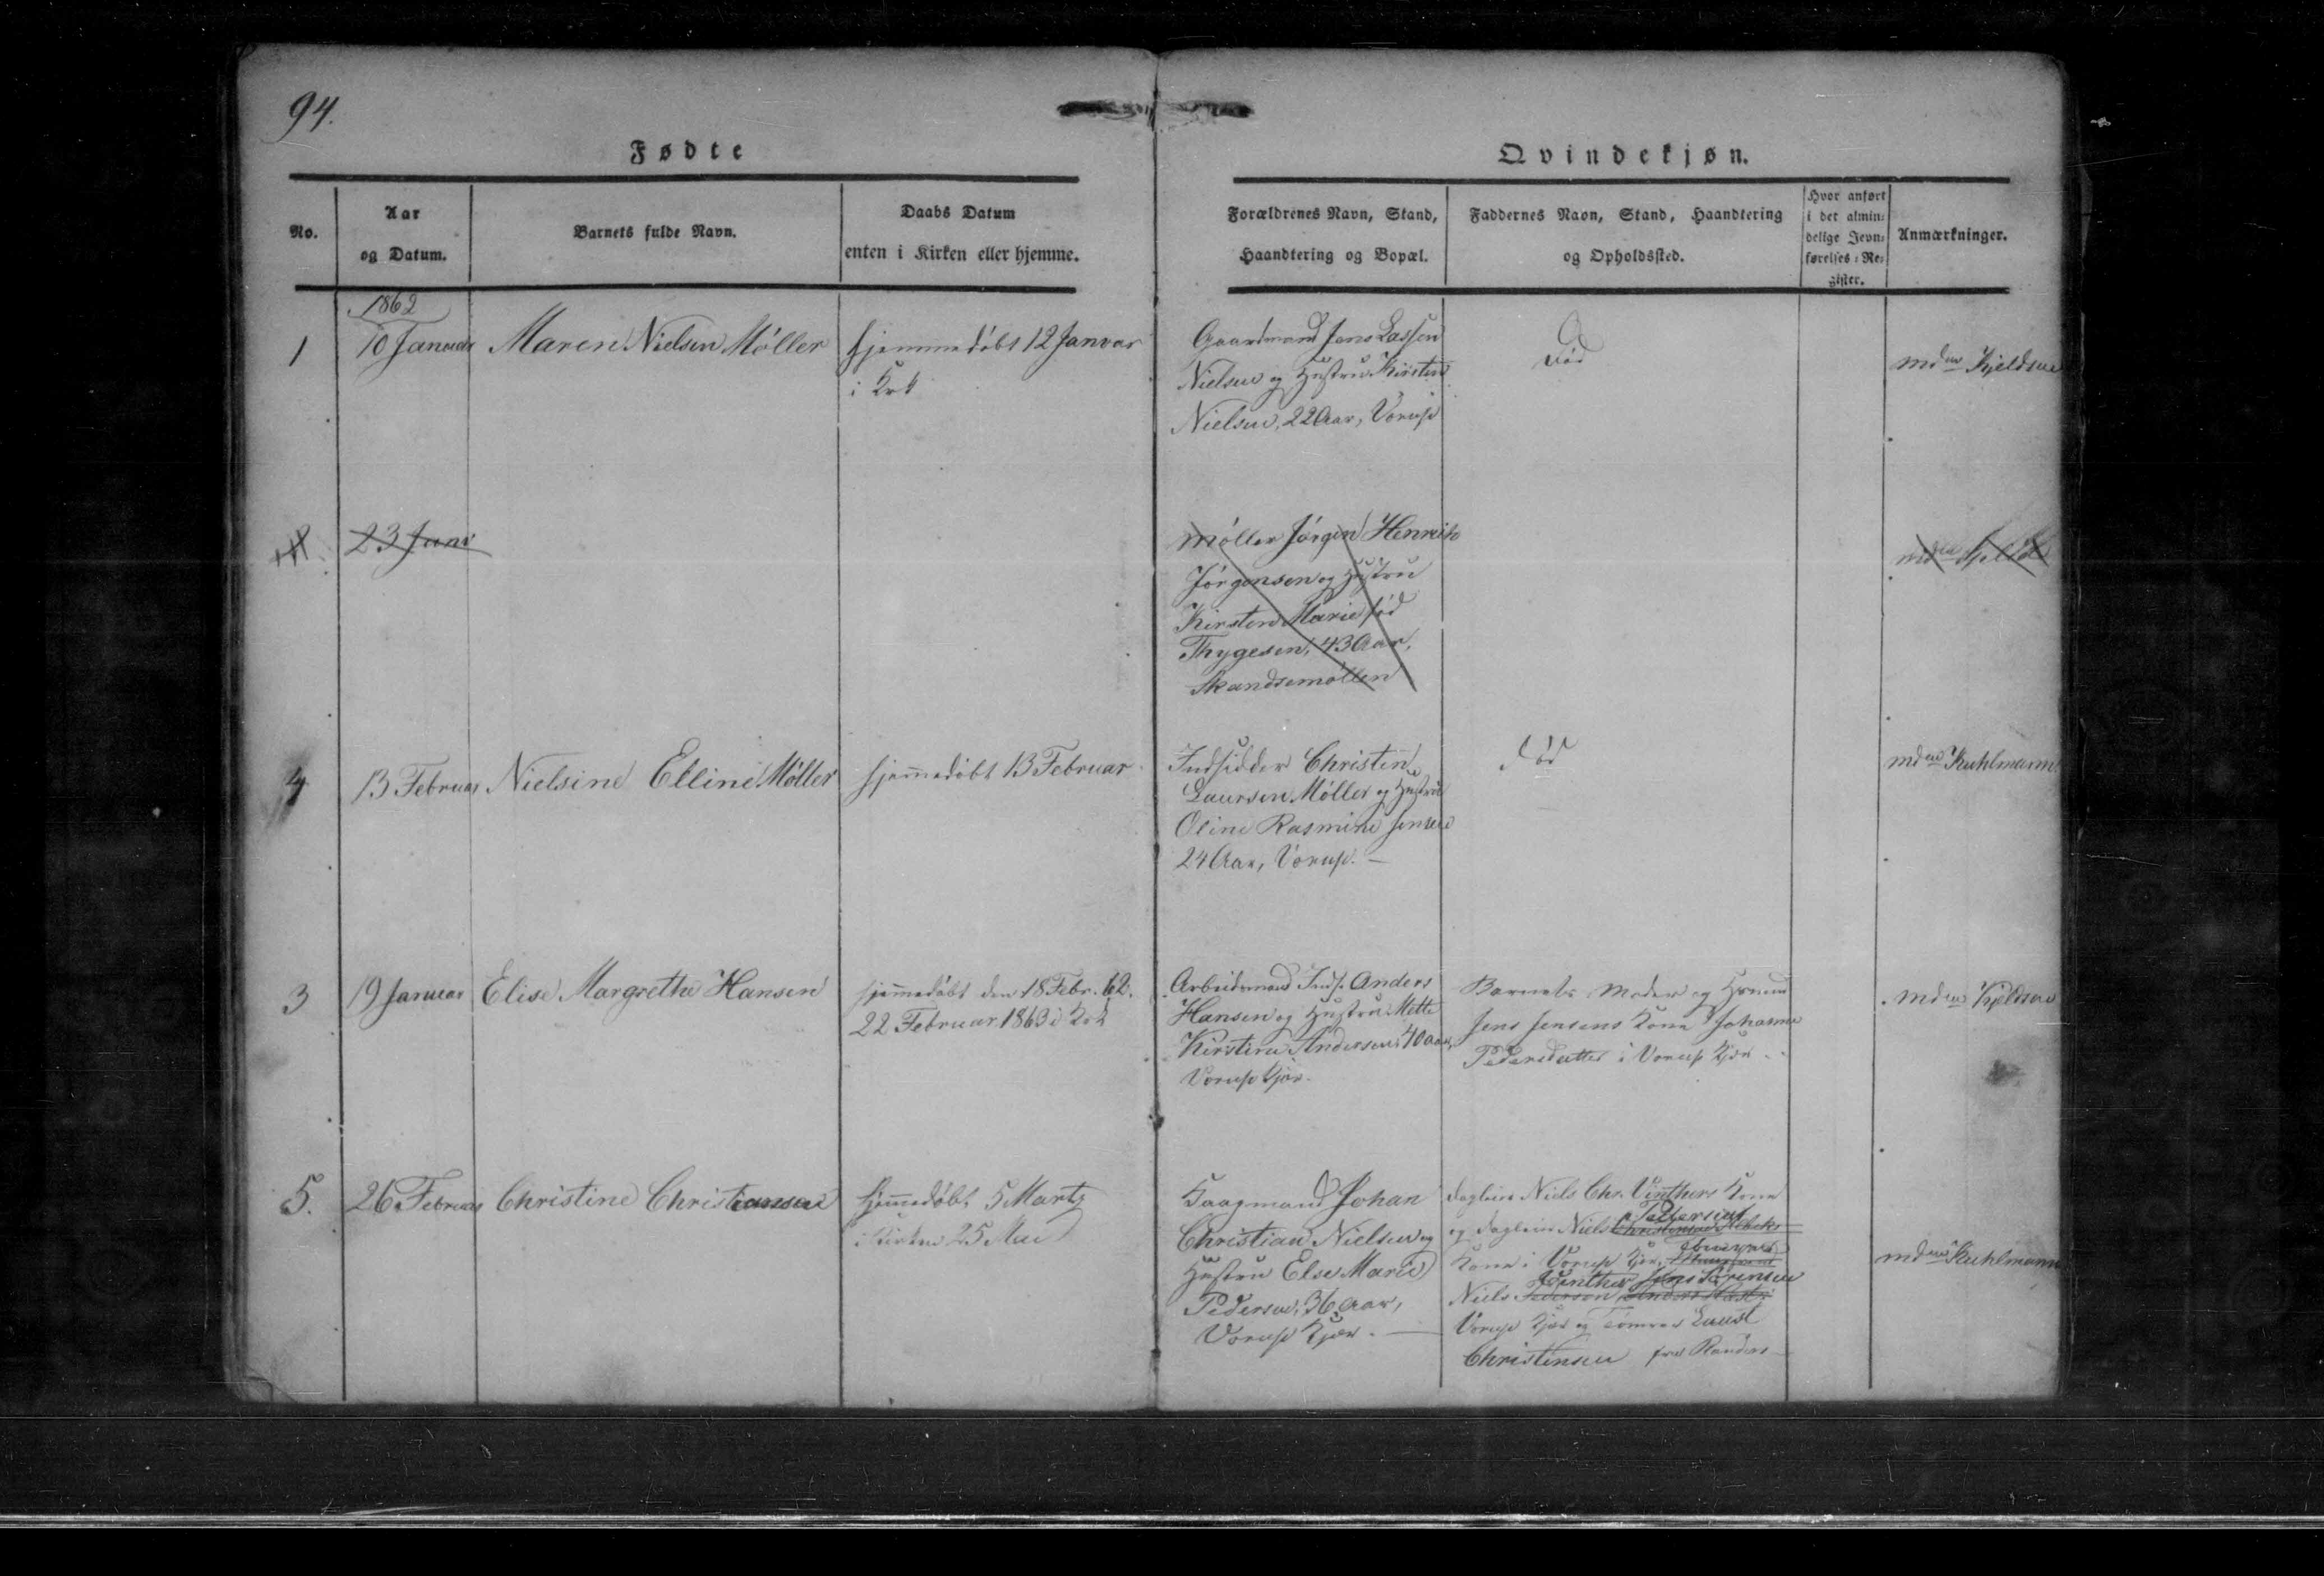 94.
Fødte
Qvindekjøn.
No.
Aar
og Datum.
Barnets fulde Navn.
Daabs Datum
enten i Kirken eller hjemme.
Forældrenes Navn, Stand,
Haandtering og Bopæl.
Faddernes Navn, Stand, Haandtering
og Opholdssted.
Hvor anført
i det almin-
delige Jevn-
førelses-Re-
gister.
Anmærkninger.
1862
1
10 Januar
Maren Nielsen Møller
hjemmedøbt 12 Januar
i Krk
Gaardmand Jens Lassen
Nielsen og Hustru Kirsten
Nielsen, 22 Aar, Vorup
død
mdm Kjeldsen
23 Janr
Møller Jørgen Henrich
Jørgensen og Hustru
Kirsten Marie fød
Thygesen, 43 Aar,
Skandsemøllen
4
13 Februar
Nielsine Elline Møller
hjemmedøbt 13 Februar
Indsidder Christen
Laursen Møller og Hustru
Oline Rasmine Jensen
24 Aar, Vorup. —
død
mdm Kuhlmann
3
19 Januar
Elise Margrethe Hansen
hjemmedøbt den 18 Febr. 62.
22 Februar 1863 i Krk
Arbeidsmand Inds. Anders
Hansen og Hustru Mette
Kirstine Andersen, 40 Aar,
Vorup Kjær.
Barnets Moder og
Jens Jensens Kone Johanne
Pedersdatter i Vorup Kjær.
mdm Kjeldsen
5.
26 Februar
Christine Christiansen
hjemmedøbt 5 Marts
i Kirken 25 Mai
Johan
Christian Nielsen og
Hustru Else Marie
Pedersen, 36 Aar,
Vorup Kjær. —
Dagleier Niels Chr. Vinthers Kone
Pedersens
og Dagleier Niels Christensen
Kone i Vorup Kjær,
Vinther Jens Sørensen
Niels Pedersen
Vorup Kjær og Tømrer
Christensen fra Randers
mdm Kuhlmann